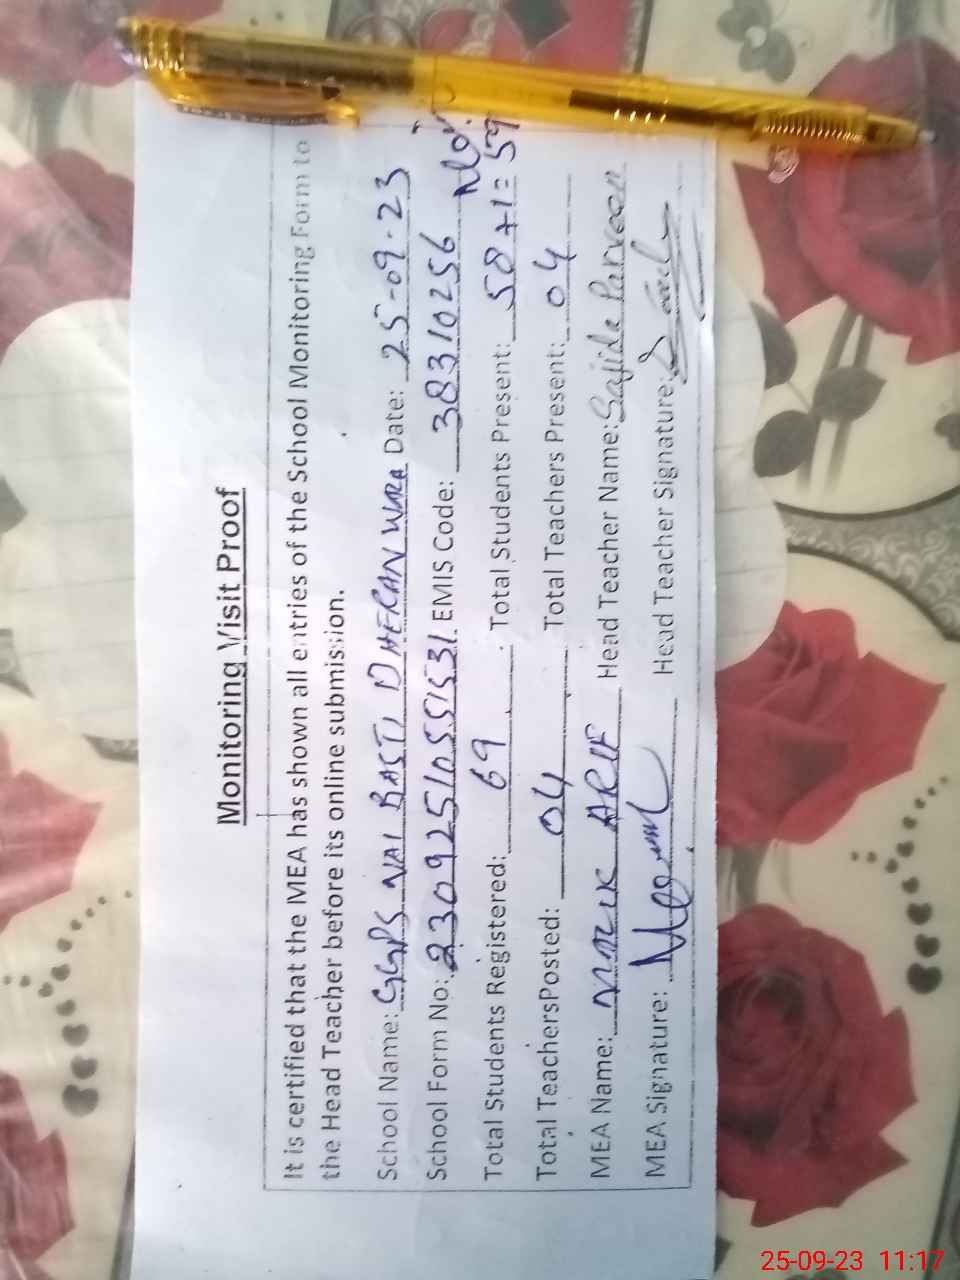 Monitoring Visit Proof
It is certified that the MEA has shown all entries of the School Monitoring Form to
the Head Teacher before its online submission.
School Name: GGPS NAI BASTI DHERAN WARA Date: 25-09-23
School Form No: 230925105515531 EMIS Code: 38310256
Total Students Registered: 69 Total Students Present: 58+1=59
Total TeachersPosted: 04 Total Teachers Present: 04
MEA Name: MALIK ARIF Head Teacher Name: Sajida Parveen
MEA Signature: Head Teacher Signature:
25-09-23 11:17